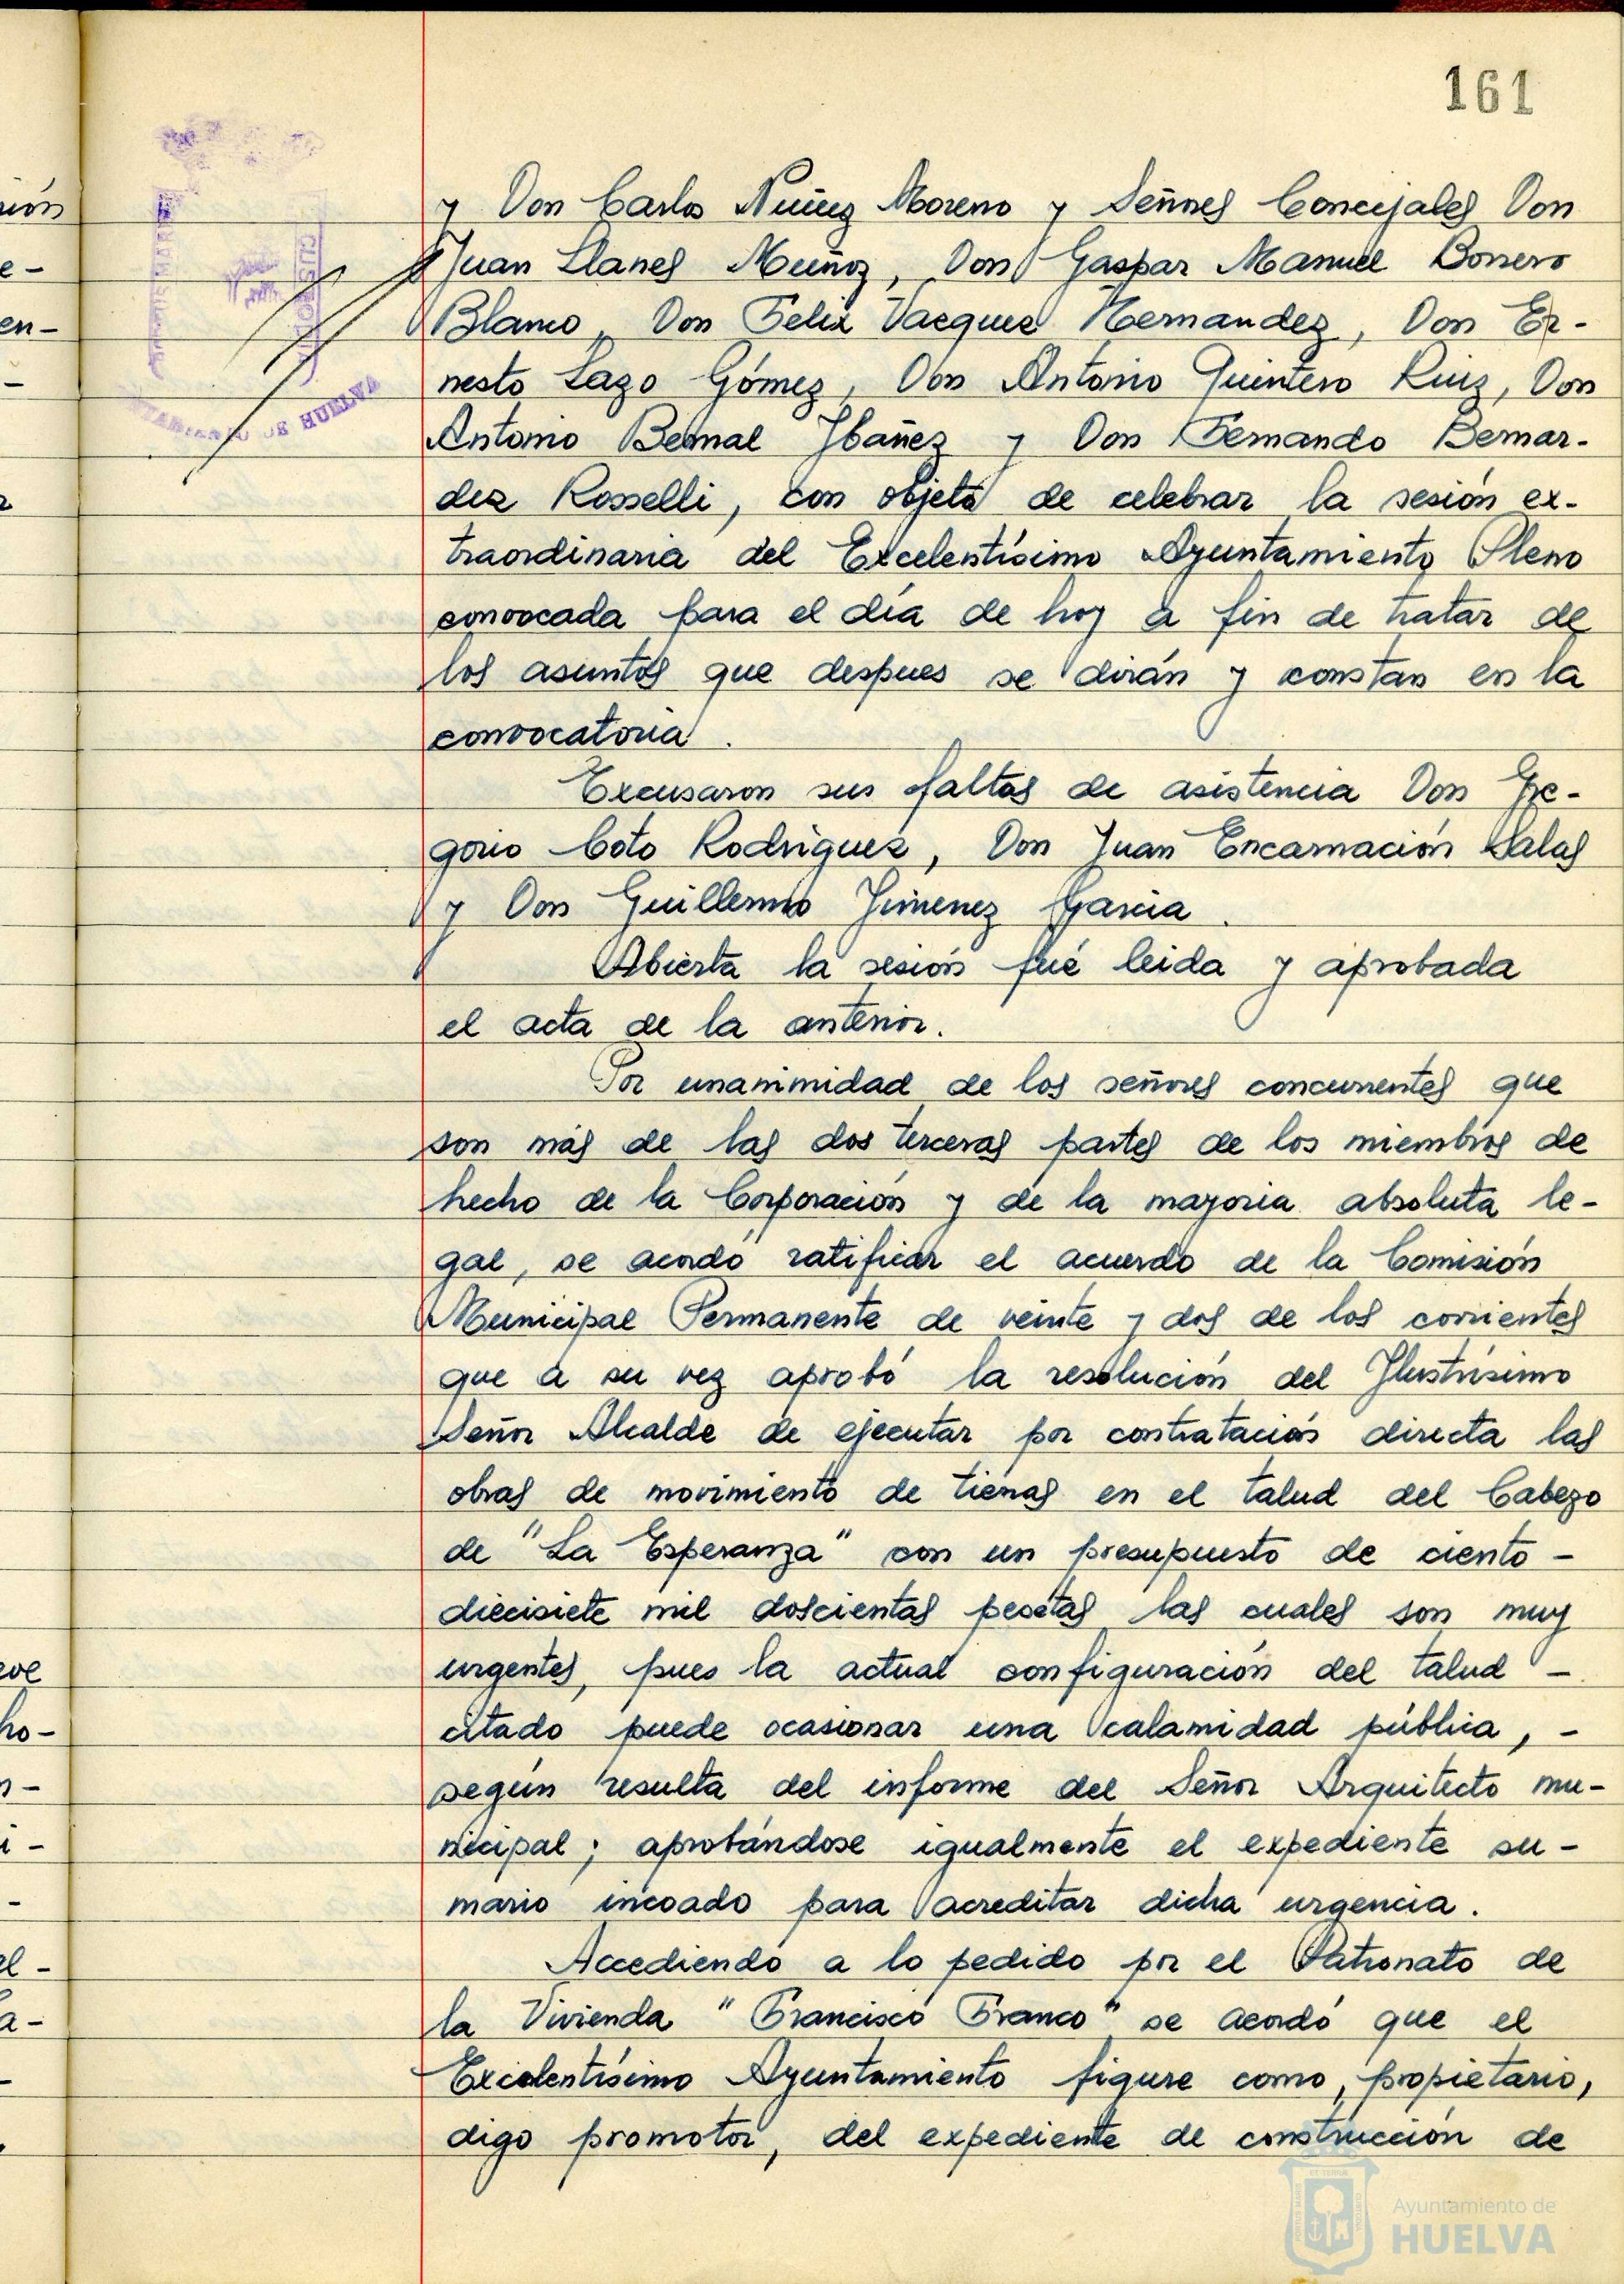 161
y Don Carlos Nuñez Moreno y Señores Concejales Don
Juan Llanes Muñoz, Don Gaspar Manuel Borrero
Blanco, Don Felix Vacquez Hernandez, Don Er-
nesto Lazo Gómez, Don Antonio Quintero Ruiz, Don
Antonio Bernal Ibañez y Don Fernando Bernar-
dez Rosselli, con objeto de celebrar la sesión ex-
traordinaria del Excelentísimo Ayuntamiento Pleno
convocada para el día de hoy a fin de tratar de
los asuntos que despues se dirán y constan en la
convocatoria.
Excusaron sus faltas de asistencia Don Gre-
gorio Coto Rodriguez, Don Juan Encarnación Salas
y Don Guillermo Jimenez Garcia.
Abierta la sesión fué leida y aprobada
el acta de la anterior.
Por unanimidad de los señores concurrentes que
son más de las dos terceras partes de los miembros de
hecho de la Corporación y de la mayoria absoluta le-
gal, se acordó ratificar el acuerdo de la Comisión
Municipal Permanente de veinte y dos de los corrientes
que a su vez aprobó la resolución del Ilustrísimo
Señor Alcalde de ejecutar por contratación directa las
obras de movimiento de tierras en el talud del Cabezo
de "La Esperanza" con un presupuesto de ciento -
diecisiete mil doscientas pesetas las cuales son muy
urgentes, pues la actual configuración del talud -
citado puede ocasionar una calamidad pública, -
según resulta del informe del Señor Arquitecto mu-
nicipal; aprobándose igualmente el expediente su-
mario incoado para acreditar dicha urgencia.
Accediendo a lo pedido por el Patronato de
la Vivienda "Francisco Franco" se acordó que el
Excelentísimo Ayuntamiento figure como, propietario,
digo promotor, del expediente de construcción de
CUSTODIA
DE HUELVA
Ayuntamiento de
HUELVA